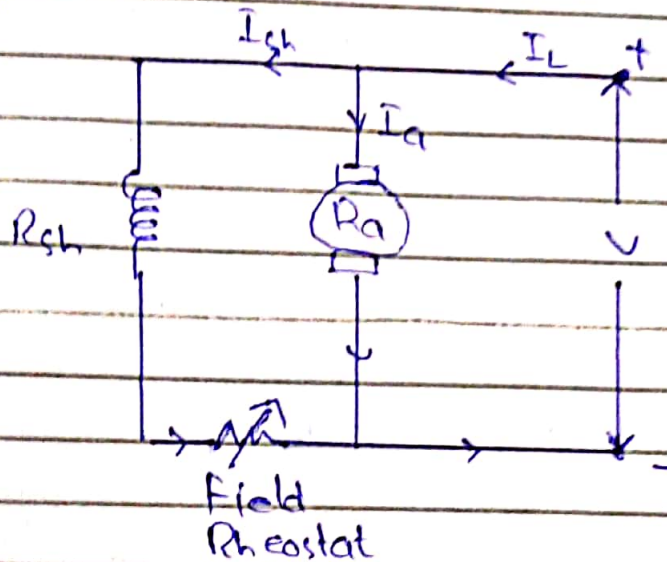 Ish
IL
+
Ia
Ra
Rsh
V
-
Field
Rheostat